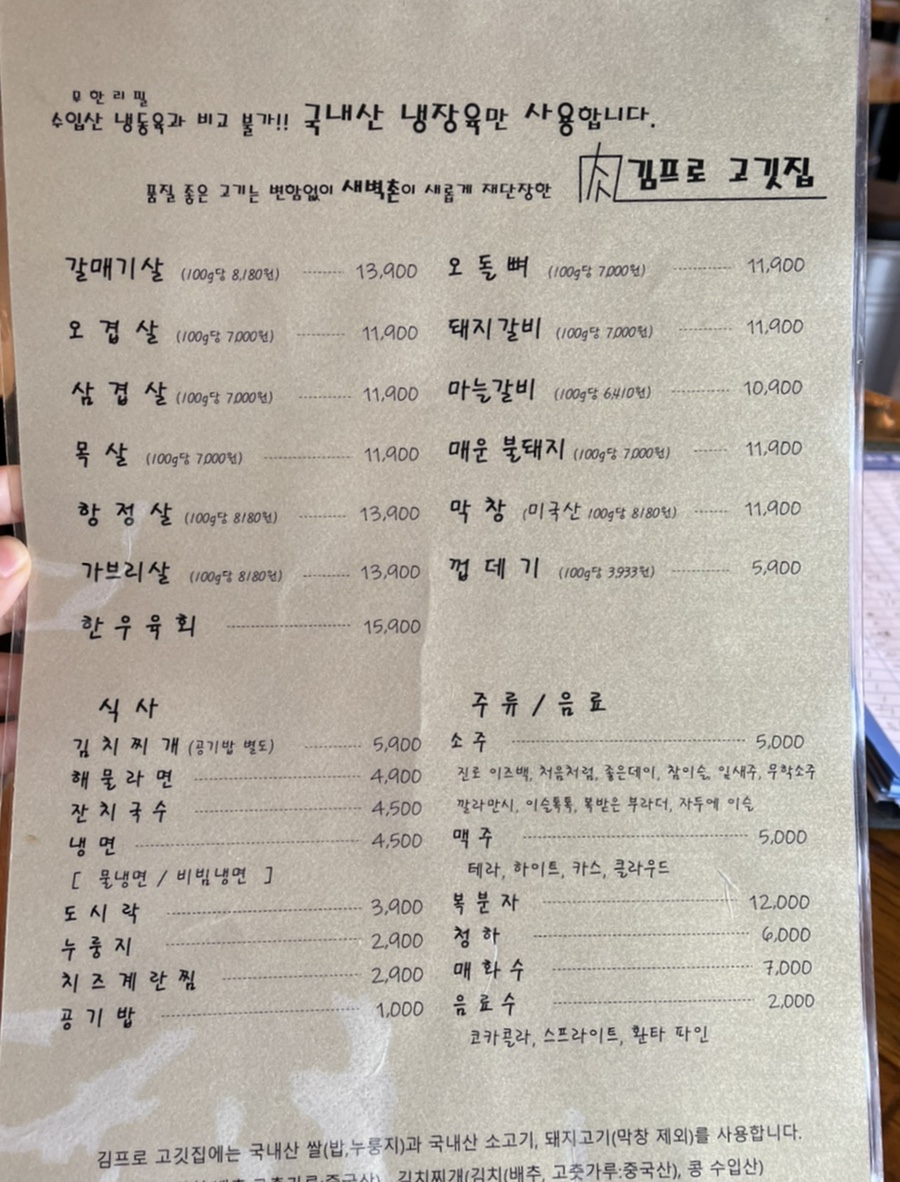 무한리필
수입산 냉동육과 비교 불가!! 국내산 냉장육만 사용합니다.
품질 좋은 고기는 변함없이 새벽촌이 새롭게 재단장한 肉 김프로 고깃집
갈매기살 (100g당 8,180원) 13,900
오겹살 (100g당 7,000원) 11,900
삼겹살 (100g당 7,000원) 11,900
목살 (100g당 7,000원) 11,900
항정살 (100g당 8180원) 13,900
가브리살 (100g당 8180원) 13,900
한우육회 15,900
오돌뼈 (100g당 7,000원) 11,900
돼지갈비 (100g당 7,000원) 11,900
마늘갈비 (100g당 6,410원) 10,900
매운 불돼지 (100g당 7,000원) 11,900
막창 (미국산 100g당 8180원) 11,900
껍데기 (100g당 3,933원) 5,900
식사
김치찌개 (공기밥 별도) 5,900
해물라면 4,900
잔치국수 4,500
냉면 4,500
[ 물냉면 / 비빔냉면 ]
도시락 3,900
누룽지 2,900
치즈계란찜 2,900
공기밥 1,000
주류 / 음료
소주 5,000
진로 이즈백, 처음처럼, 좋은데이, 참이슬, 잎새주, 무학소주
깔라만시, 이슬톡톡, 복받은 부라더, 자두에 이슬
맥주 5,000
테라, 하이트, 카스, 클라우드
복분자 12,000
청하 6,000
매화수 7,000
음료수 2,000
코카콜라, 스프라이트, 환타 파인
김프로 고깃집에는 국내산 쌀(밥,누룽지)과 국내산 소고기, 돼지고기(막창 제외)를 사용합니다.
김치찌개(김치(배추, 고춧가루:중국산), 콩 수입산)